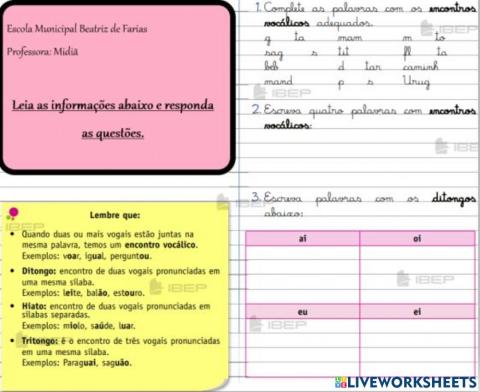 Escola Municipal Beatriz de Farias
Professora: Midiã
Leia as informações abaixo e responda
as questões.
Lembre que:
• Quando duas ou mais vogais estão juntas na
mesma palavra, temos um encontro vocálico.
Exemplos: voar, igual, perguntou.
• Ditongo: encontro de duas vogais pronunciadas em
uma mesma sílaba.
Exemplos: leite, balão, estouro.
• Hiato: encontro de duas vogais pronunciadas em
sílabas separadas.
Exemplos: miolo, saúde, luar.
• Tritongo: é o encontro de três vogais pronunciadas
em uma mesma sílaba.
Exemplos: Paraguai, saguão.
1. Complete as palavras com os encontros
vocálicos adequados.
g ta mam m to
sag s tit fl ta
bab d tan caminh
mand p s Urug
2. Escreva quatro palavras com encontros
vocálicos:
3. Escreva palavras com os ditongos
abaixo:
ai oi
eu ei
IBEP
IBEP
IBEP
IBEP
IBEP
IBEP
LIVEWORKSHEETS